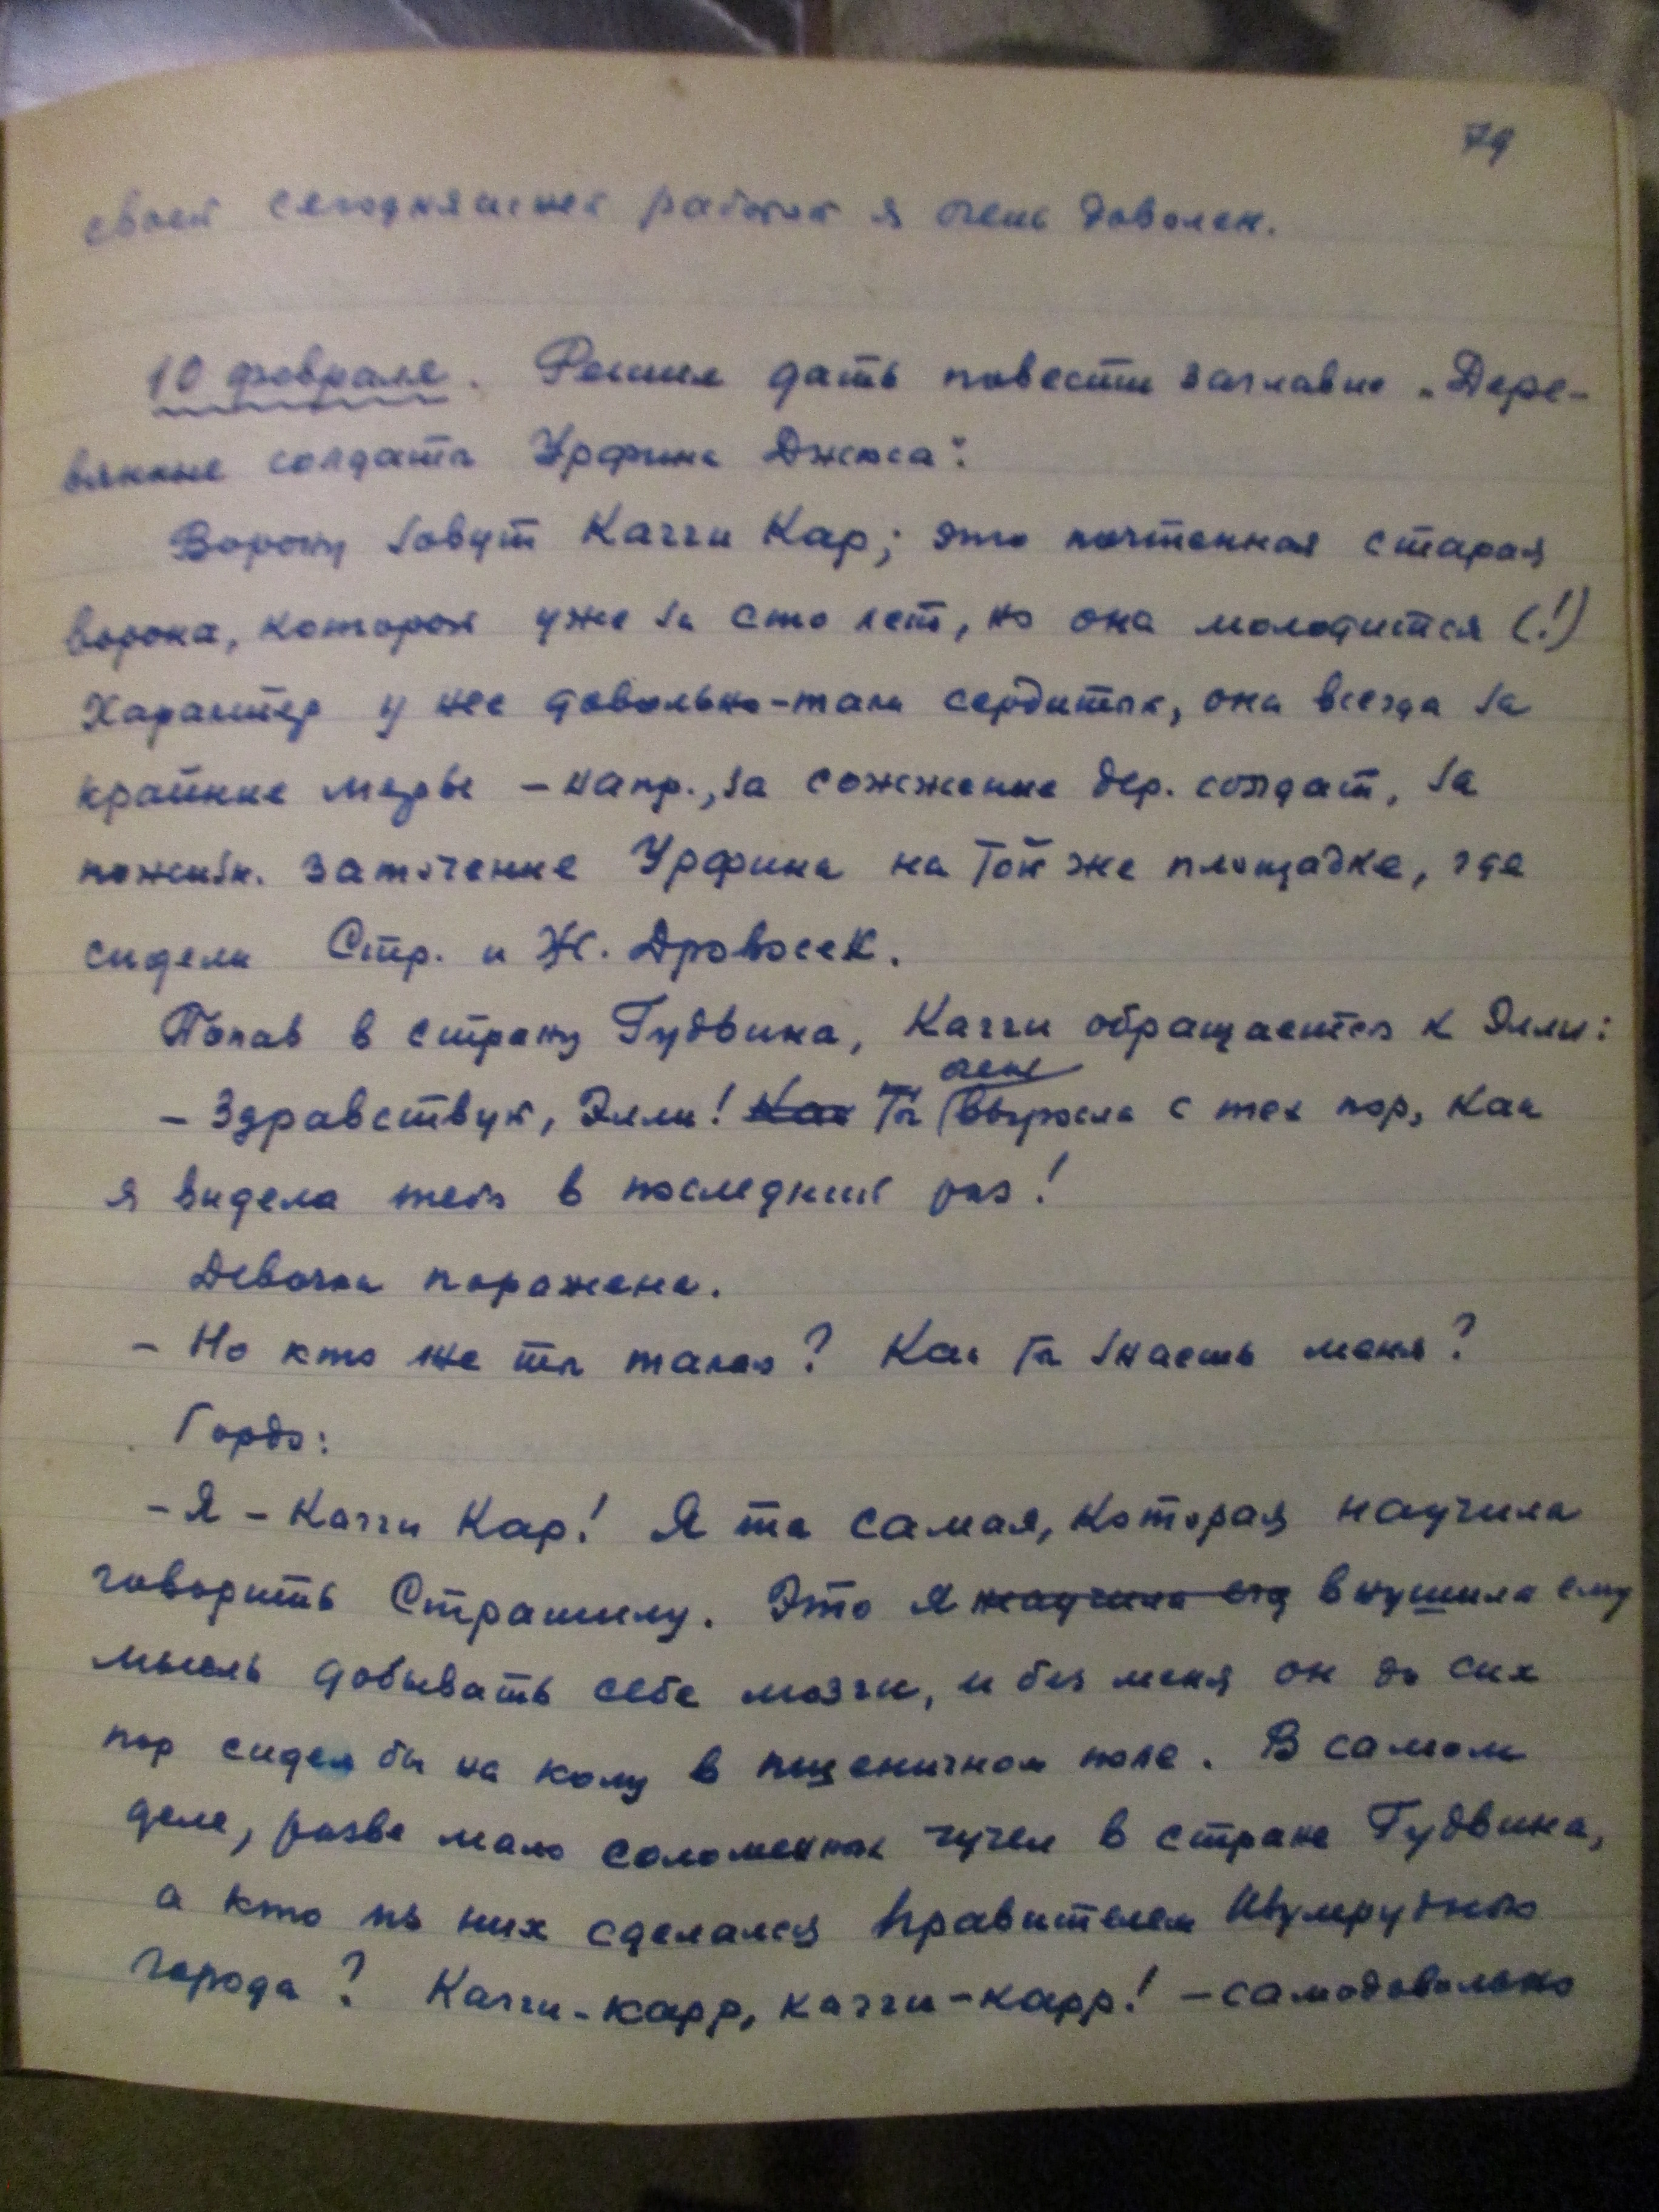 79
своей сегодняшней работой я очень доволен.
10 февраля. Решил дать повести заглавие „Дере-
вянные солдаты Урфина Джюса".
Ворону зовут Кагги Кар; это почтенная старая
ворона, которой уже за сто лет, но она молодится (!)
Характер у нее довольно-таки сердитый, она всегда за
крайние меры – напр., за сожжение дер. солдат, за
пожизн. заточение Урфина на той же площадке, где
сидели Стр. и Ж. Дровосек.
Попав в страну Гудвина, Кагги обращается к Элли:
– Здравствуй, Элли! Как Ты очень выросла с тех пор, как
я видела тебя в последний раз!
Девочка поражена.
– Но кто же ты такая? Как ты знаешь меня?
Гордо:
– Я – Кагги Кар! Я та самая, которая научила
говорить Страшилу. Это я научила его внушила ему
мысль добывать себе мозги, и без меня он до сих
пор сидел бы на колу в пшеничном поле. В самом
деле, разве мало соломенных чучел в стране Гудвина,
а кто из них сделался правителем Изумрудного
города? Кагги-карр, кагги-карр! – самодовольно